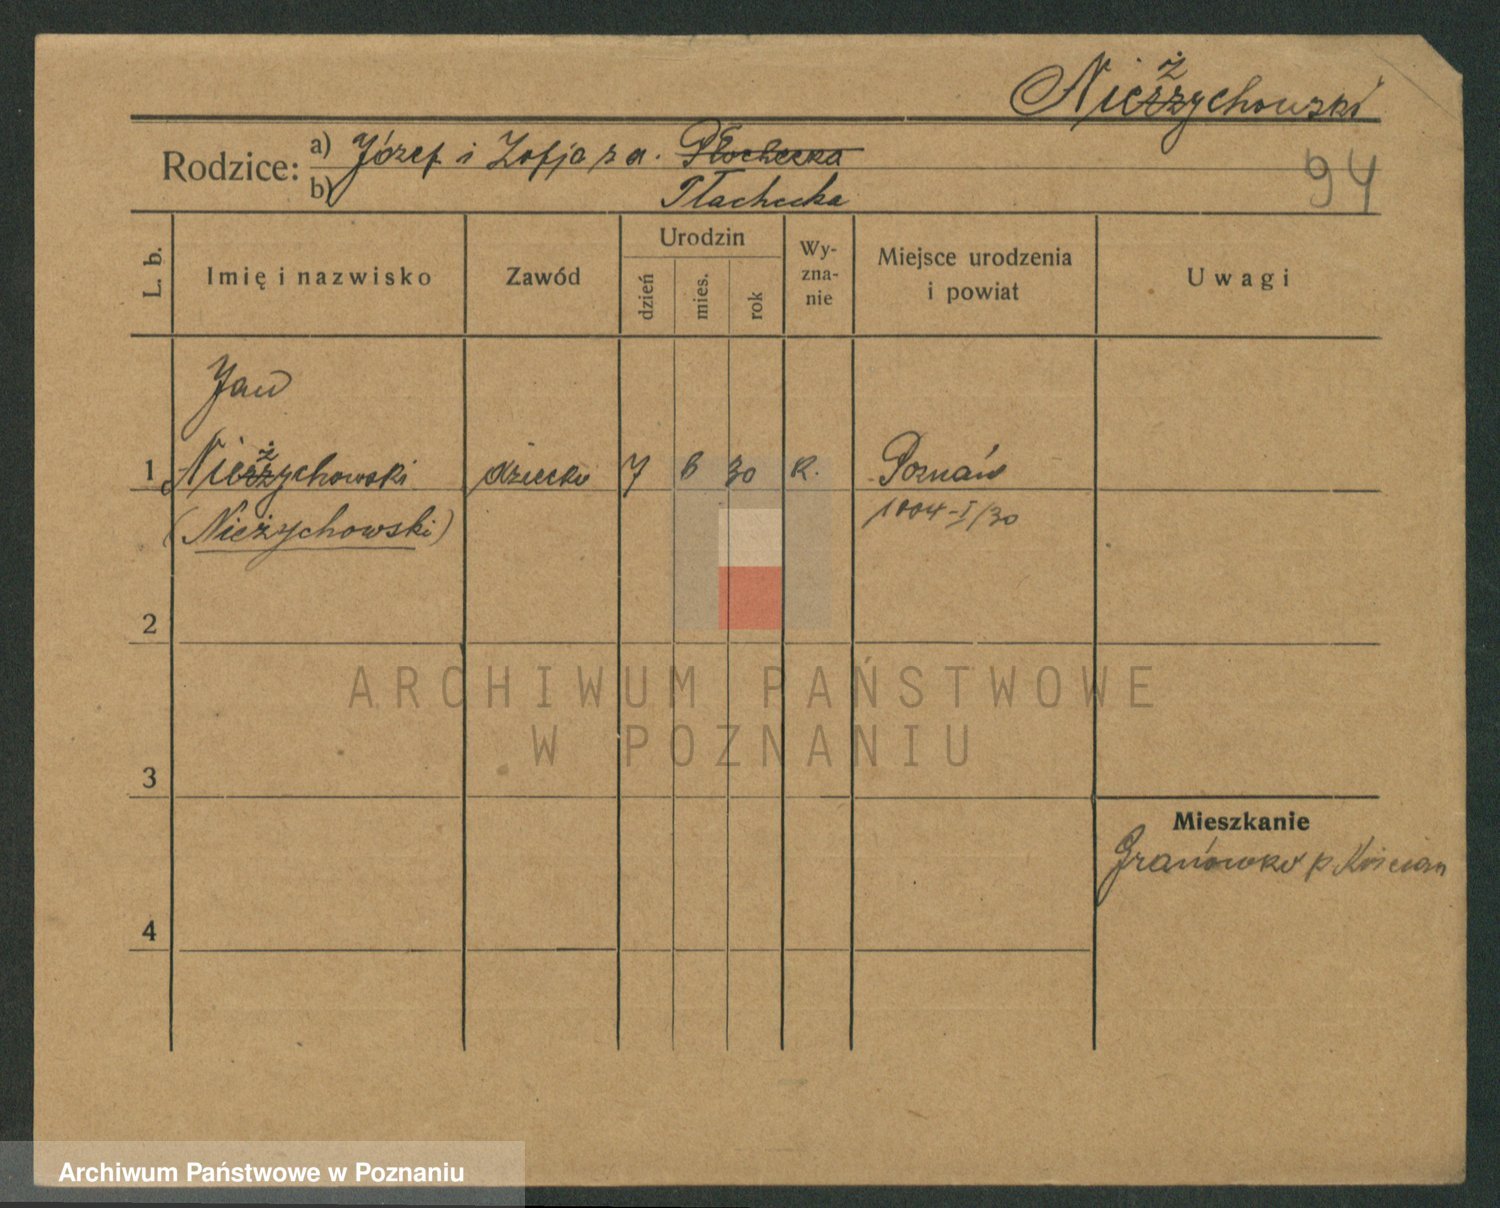 Nieżychowski
Rodzice: a) Józef i Zofja z d. Płochecka
b) Tłachecka
94
L. b.
Imię i nazwisko
Zawód
Urodzin
dzień
mies.
rok
Wy-
zna-
nie
Miejsce urodzenia
i powiat
Uwagi
Jan
1 Nieżychowski dziecko 7 6 30 K. Poznań
(Nieżychowski) 1004-I/30
2
3
4
Mieszkanie
Granówko p. Kościan
ARCHIWUM PAŃSTWOWE
W POZNANIU
Archiwum Państwowe w Poznaniu